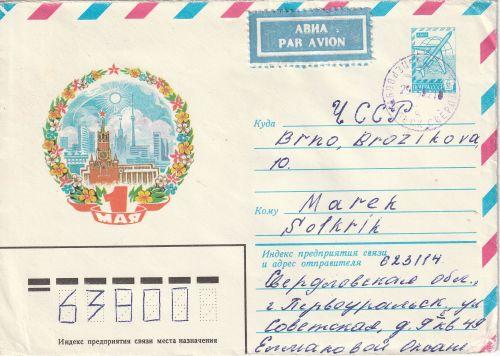 АВИА
PAR AVION
1
МАЯ
Куда
ЧССР
Brno, Brožíkova
10.
Кому
Marek
Solkrik
Индекс предприятия связи
и адрес отправителя
623114
Свердловская обл.,
г. Первоуральск, ул
Советская, д. 9 кв 49
63800
Индекс предприятия связи места назначения